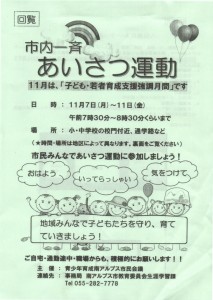 回覧
市内一斉
あいさつ運動
11月は、「子ども・若者育成支援強調月間」です
日 時 : 11月7日(月)~11日(金)
午前7時30分~8時30分くらいまで
場 所 : 小・中学校の校門付近、通学路など
(★時間・場所は地区によって異なります。裏面をご覧ください)
市民みんなであいさつ運動に参加しましょう!
おはよう
いってらっしゃい
気をつけて
地域みんなで子どもたちを守り、育て
ていきましょう!
ご自宅・通勤途中・職場からも、積極的にお願いします!!
主 催 : 青少年育成南アルプス市民会議
連絡先 : 事務局 南アルプス市教育委員会生涯学習課
Tel 055-282-7778